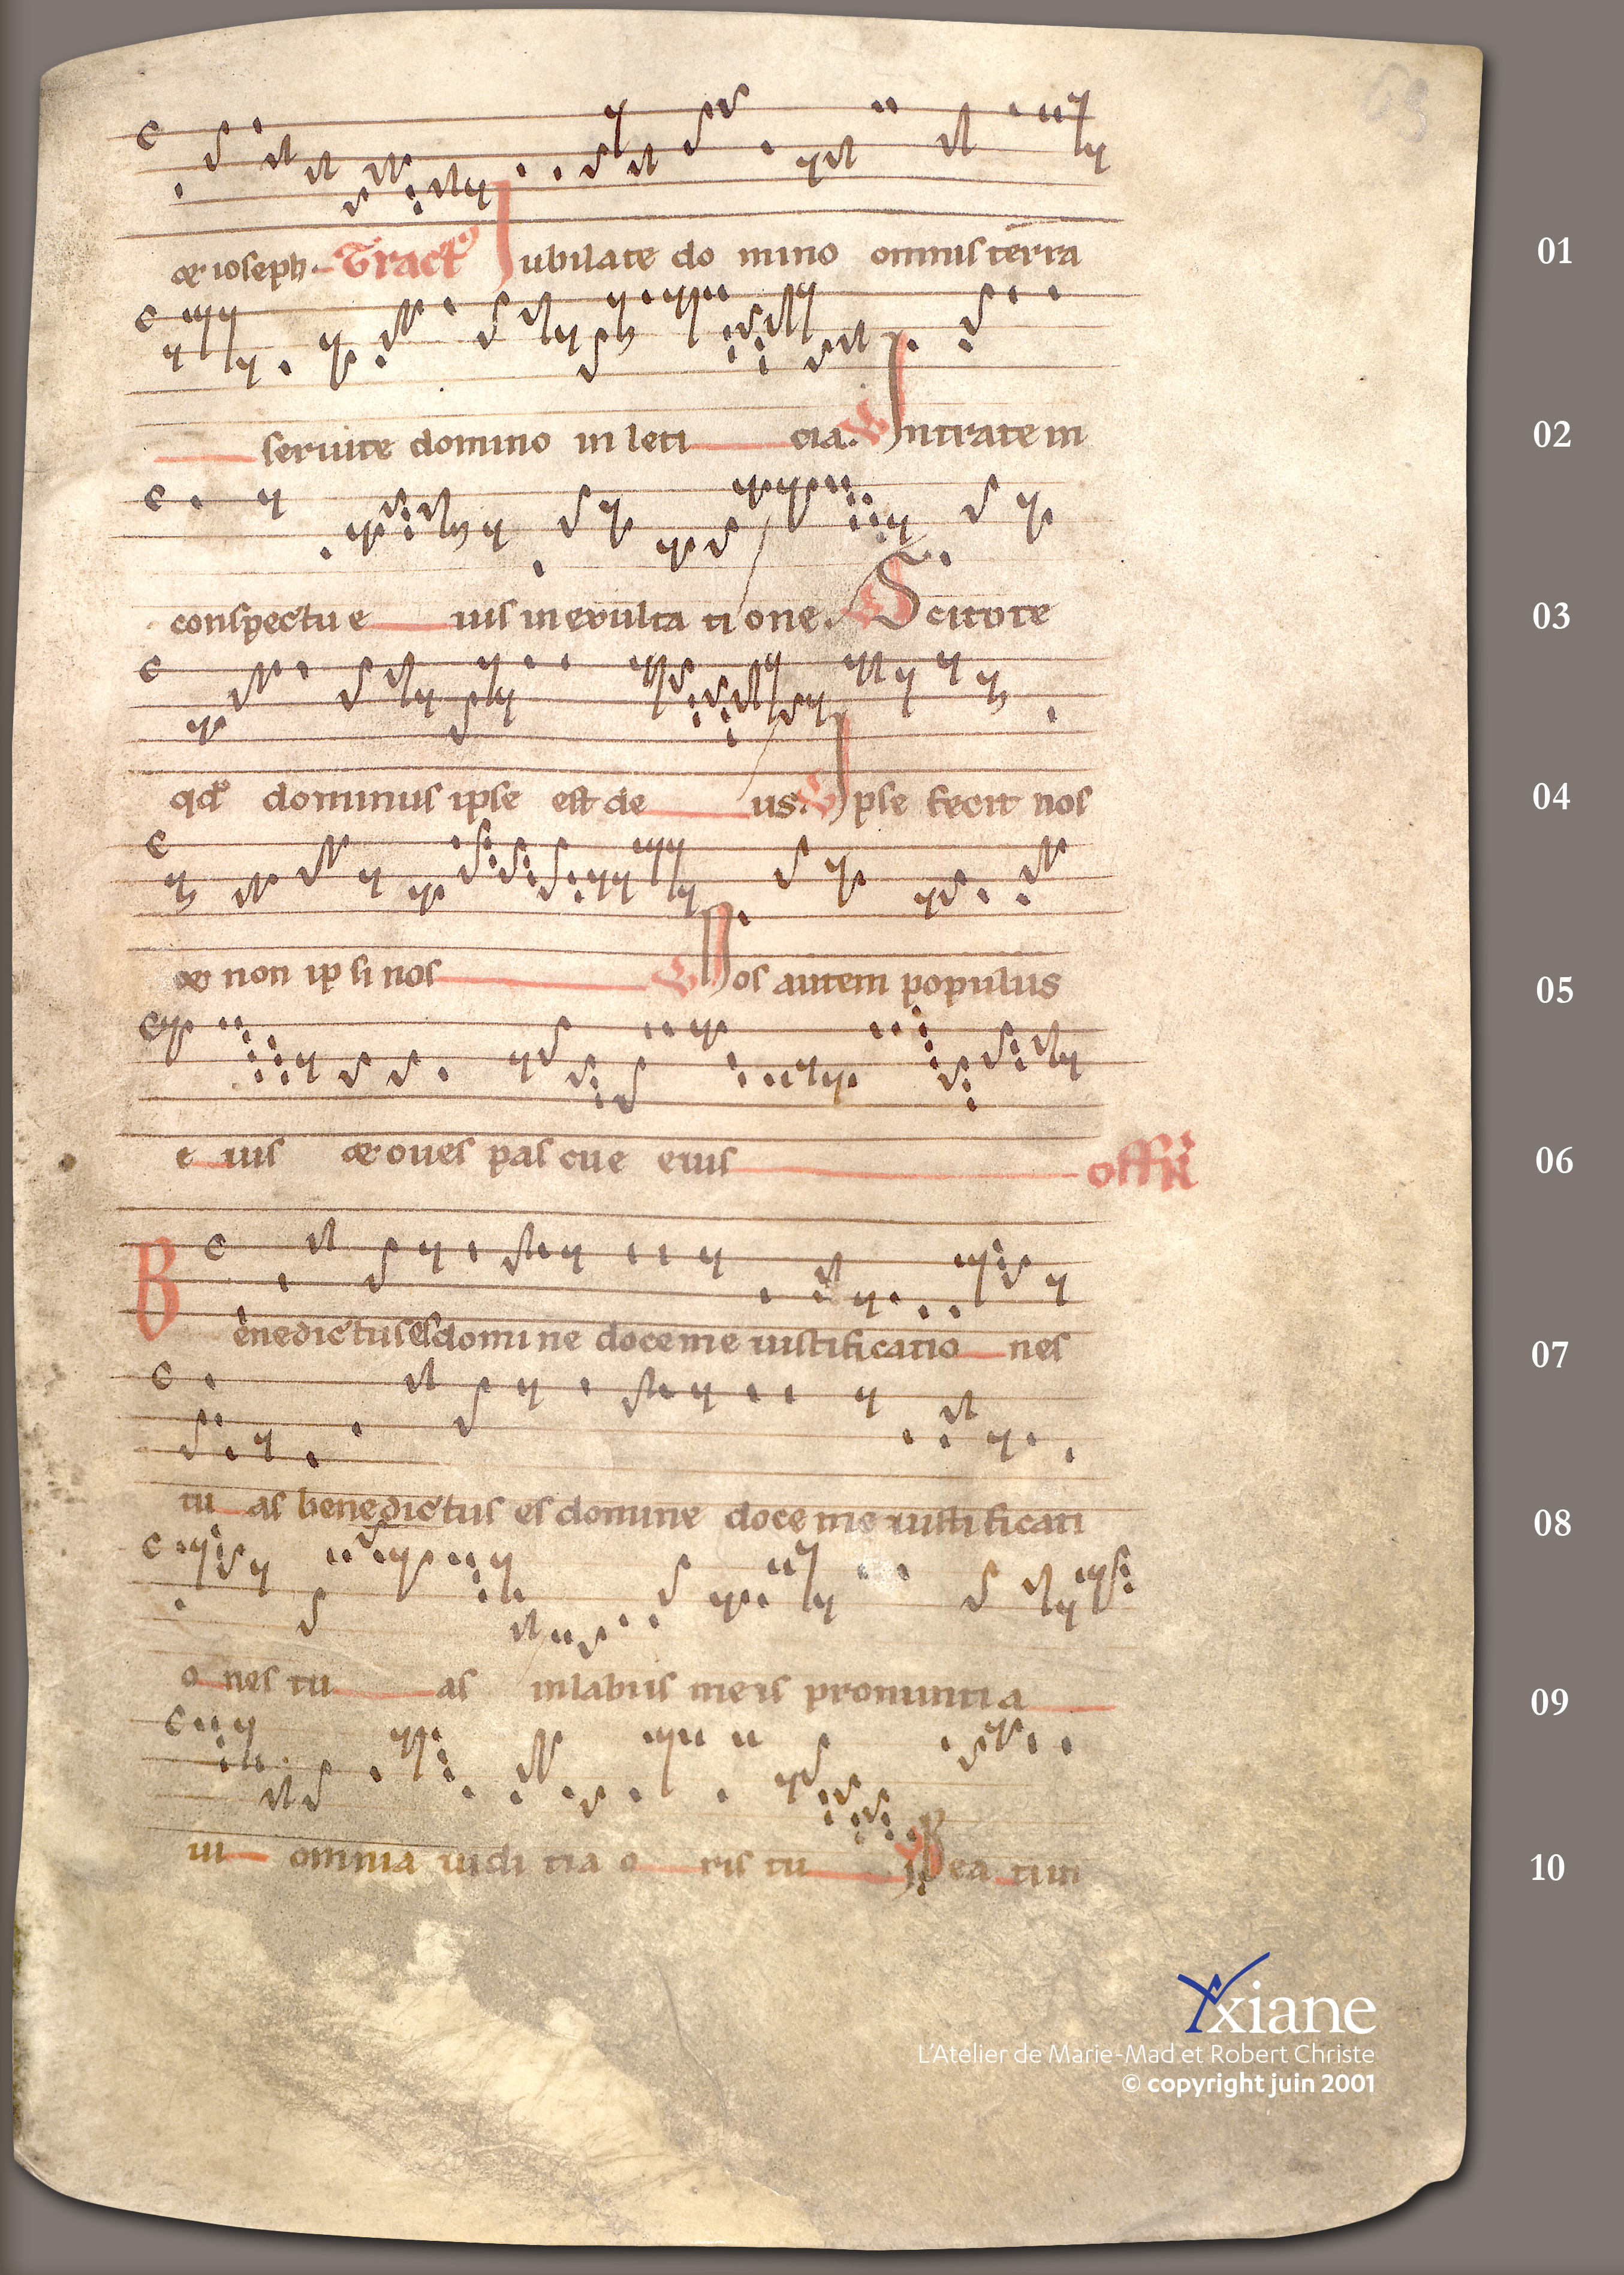 63
& ioseph. Tract9 Iubilate do mino omnis terra
seruite domino in leti cia. V Intrate in
conspectu e ius in exulta ti one. V Scitote
qd° dominus ipse est de us. V Ipse fecit nos
& non ip si nos V Nos autem populus
e ius & oues pas cue eius offr
Benedictus es domi ne doce me iustificatio nes
tu as benedictus es domine doce me iustificati
o nes tu as in labiis meis pronuntia
ui omnia iudi tia o ris tu i Bea ti in
01
02
03
04
05
06
07
08
09
10
Yxiane
L'Atelier de Marie-Mad et Robert Christe
© copyright juin 2001